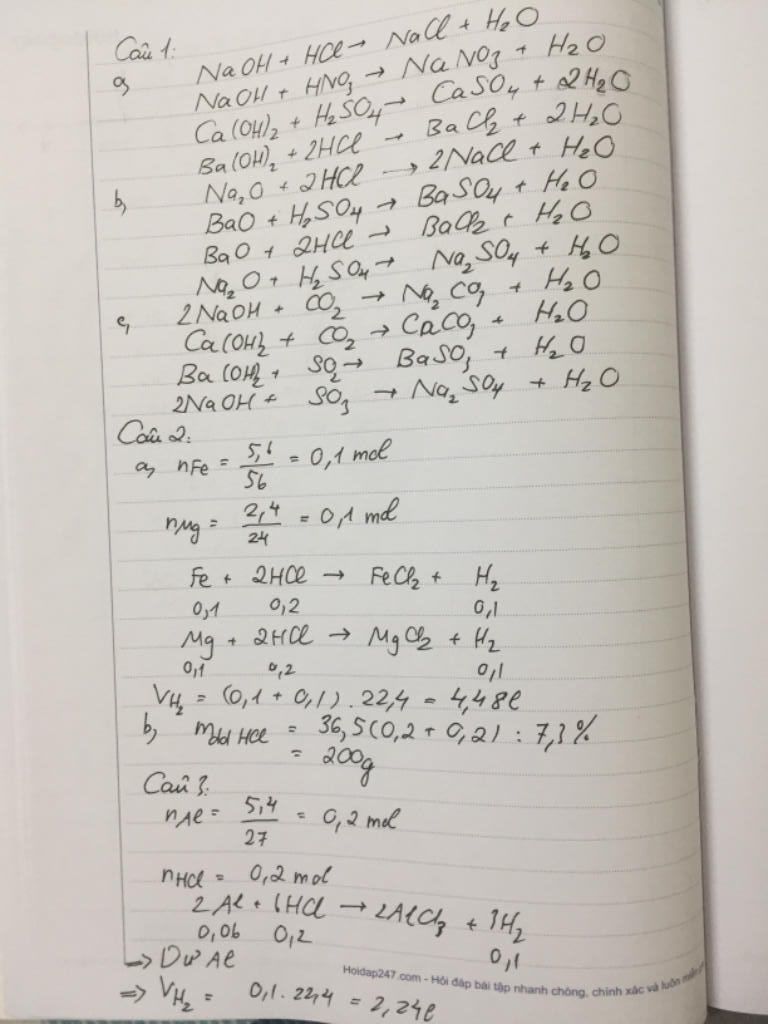 Câu 1:
a, NaOH + HCl → NaCl + H₂O
NaOH + HNO₃ → NaNO₃ + H₂O
Ca(OH)₂ + H₂SO₄ → CaSO₄ + 2H₂O
Ba(OH)₂ + 2HCl → BaCl₂ + 2H₂O
b, Na₂O + 2HCl → 2NaCl + H₂O
BaO + H₂SO₄ → BaSO₄ + H₂O
BaO + 2HCl → BaCl₂ + H₂O
Na₂O + H₂SO₄ → Na₂SO₄ + H₂O
c, 2NaOH + CO₂ → Na₂CO₃ + H₂O
Ca(OH)₂ + CO₂ → CaCO₃ + H₂O
Ba(OH)₂ + SO₂ → BaSO₃ + H₂O
2NaOH + SO₃ → Na₂SO₄ + H₂O
Câu 2:
a, nFe = 5,6/56 = 0,1 mol
nMg = 2,4/24 = 0,1 mol
Fe + 2HCl → FeCl₂ + H₂
0,1 0,2 0,1
Mg + 2HCl → MgCl₂ + H₂
0,1 0,2 0,1
VH₂ = (0,1 + 0,1) . 22,4 = 4,48l
b, mdd HCl = 36,5(0,2 + 0,2) : 7,3%
= 200g
Câu 3:
nAl = 5,4/27 = 0,2 mol
nHCl = 0,2 mol
2Al + 6HCl → 2AlCl₃ + 3H₂
0,06 0,2 0,1
=> Dư Al
=> VH₂ = 0,1 . 22,4 = 2,24l
Hoidap247.com - Hỏi đáp bài tập nhanh chóng, chính xác và luôn miễn